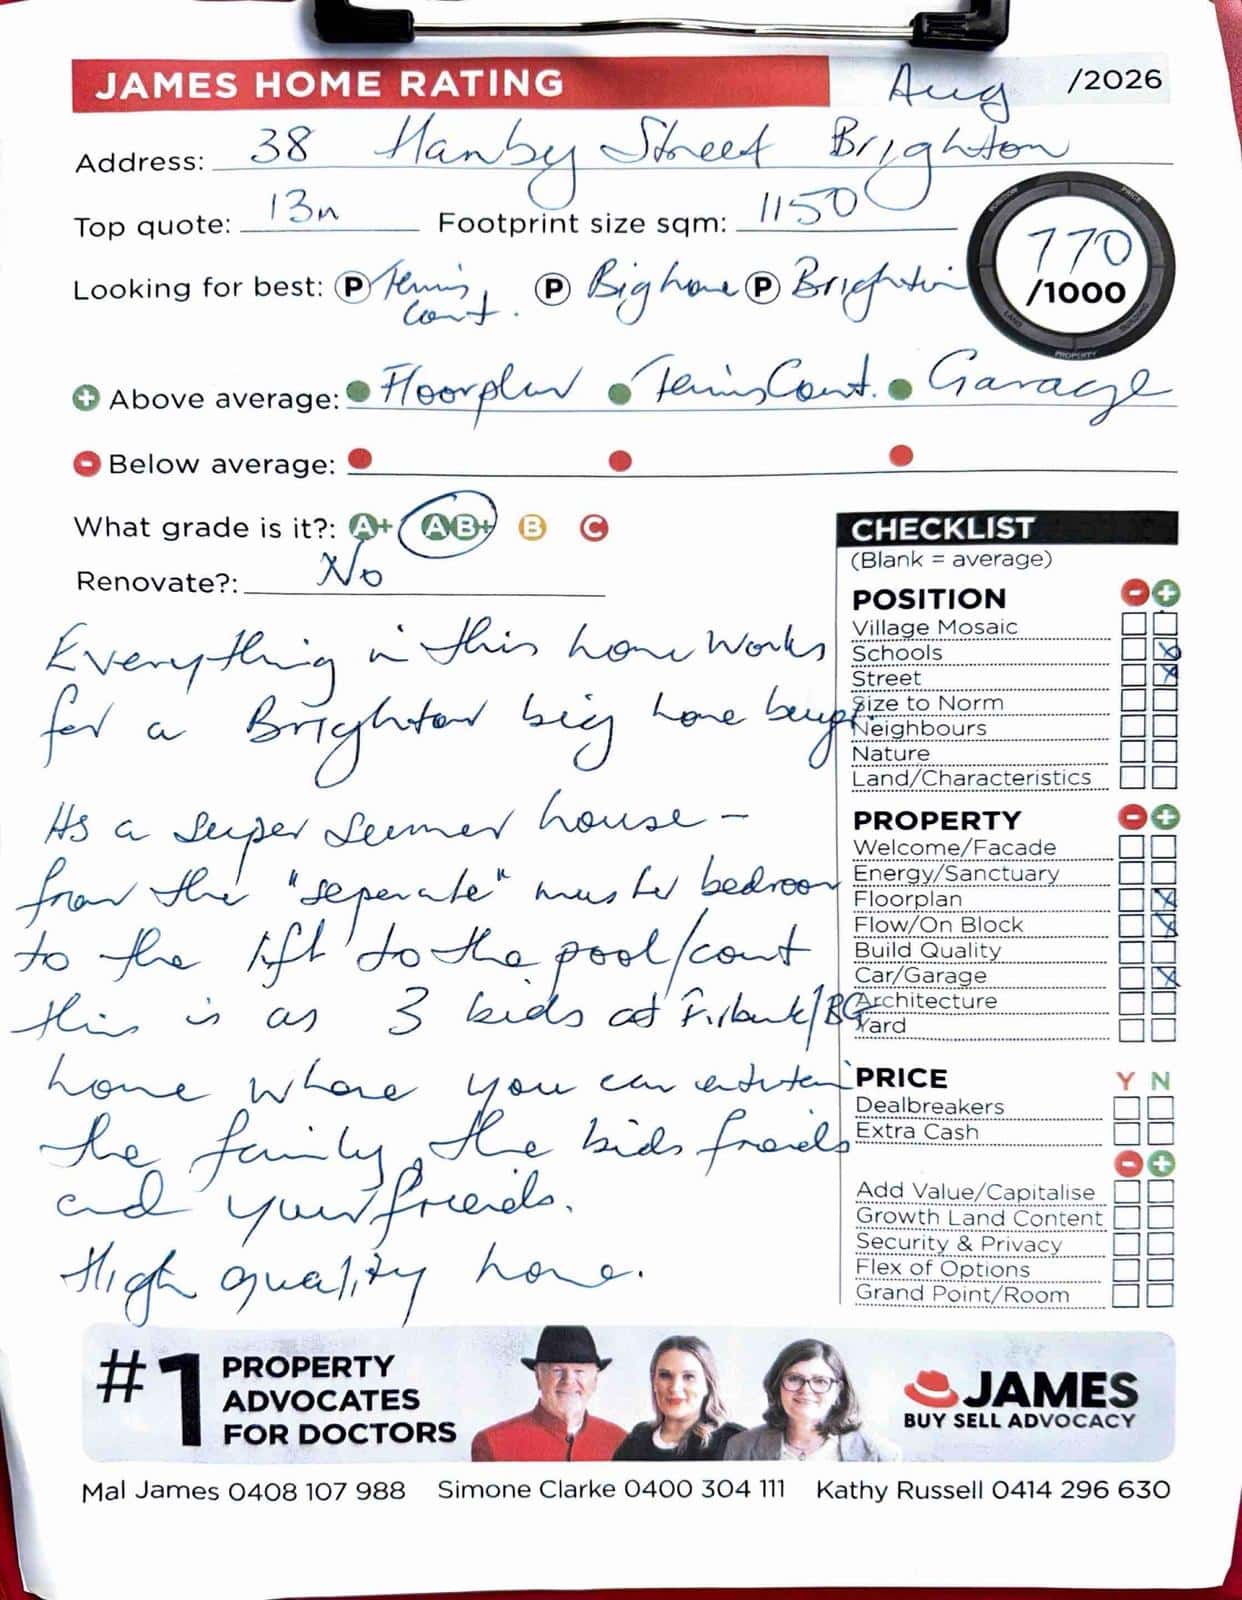 JAMES HOME RATING Aug /2026
Address: 38 Hanby Street Brighton
Top quote: 13m Footprint size sqm: 1150
770
/1000
POSITION PRICE LAND BUILDING PROPERTY
Looking for best: P Tennis Court. P Big home P Brighton
+ Above average: Floorplan Tennis Court. Garage
- Below average:
What grade is it?: A+ A B+ B C
Renovate?: No
Everything in this home works
for a Brighton big home buyer.
Its a super summer house -
from the "seperate" master bedroom
to the lift to the pool/court
this is as 3 kids at Firbank/BG
home where you can entertain
the family, the kids friends
and your friends.
High quality home.
CHECKLIST
(Blank = average)
POSITION - +
Village Mosaic
Schools x
Street x
Size to Norm
Neighbours
Nature
Land/Characteristics
PROPERTY - +
Welcome/Facade
Energy/Sanctuary
Floorplan x
Flow/On Block x
Build Quality
Car/Garage x
Architecture
Yard
PRICE Y N
Dealbreakers
Extra Cash
- +
Add Value/Capitalise
Growth Land Content
Security & Privacy
Flex of Options
Grand Point/Room
#1 PROPERTY
ADVOCATES
FOR DOCTORS
JAMES
BUY SELL ADVOCACY
Mal James 0408 107 988 Simone Clarke 0400 304 111 Kathy Russell 0414 296 630